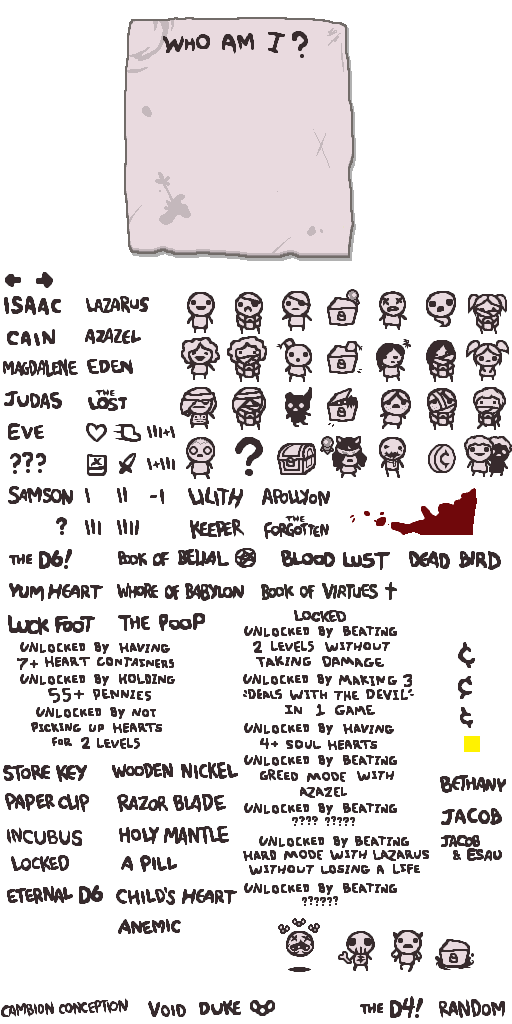 WHO AM I ?
ISAAC LAZARUS
CAIN AZAZEL
MAGDALENE EDEN
JUDAS THE LOST
EVE III+I
??? I+III
?
SAMSON I II -I LILITH APOLLYON
? III IIII KEEPER THE FORGOTTEN
THE D6! BOOK OF BELIAL BLOOD LUST DEAD BIRD
YUM HEART WHORE OF BABYLON BOOK OF VIRTUES
LUCK FOOT THE POOP
UNLOCKED BY HAVING
7+ HEART CONTAINERS
UNLOCKED BY HOLDING
55+ PENNIES
UNLOCKED BY NOT
PICKING UP HEARTS
FOR 2 LEVELS
LOCKED
UNLOCKED BY BEATING
2 LEVELS WITHOUT
TAKING DAMAGE
UNLOCKED BY MAKING 3
"DEALS WITH THE DEVIL"
IN 1 GAME
UNLOCKED BY HAVING
4+ SOUL HEARTS
UNLOCKED BY BEATING
GREED MODE WITH
AZAZEL
UNLOCKED BY BEATING
???? ?????
UNLOCKED BY BEATING
HARD MODE WITH LAZARUS
WITHOUT LOSING A LIFE
UNLOCKED BY BEATING
??????
¢
¢
¢
STORE KEY WOODEN NICKEL
PAPER CLIP RAZOR BLADE
INCUBUS HOLY MANTLE
LOCKED A PILL
ETERNAL D6 CHILD'S HEART
ANEMIC
BETHANY
JACOB
JACOB
& ESAU
CAMBION CONCEPTION VOID DUKE THE D4! RANDOM